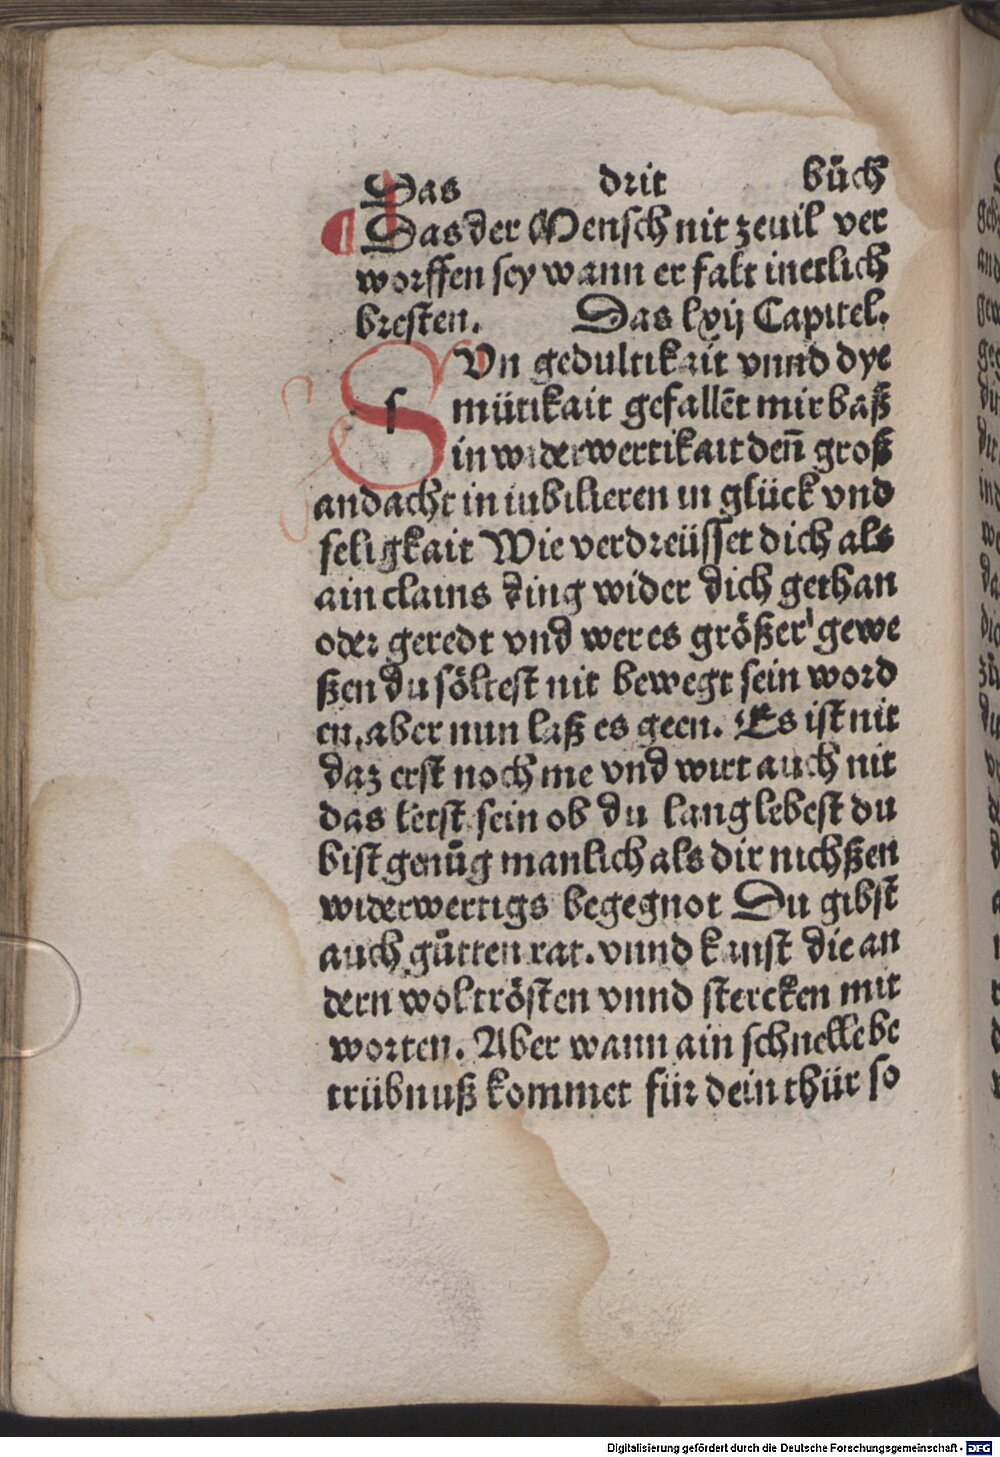 Das drit bůch
Das der Mensch nit zeuil ver
worffen sey wann er falt in etlich
bresten. Das lxij Capitel.
SVn gedultikait vnnd dye
mütikait gefallēt mir baß
in widerwertikait deñ groß
andacht in iubilieren in glück vnd
seligkait Wie verdreüsset dich als
ain clains ding wider dich gethan
oder geredt vnd wer es größer gewe
ßen du söltest nit bewegt sein word
en. aber nun laß es geen. Es ist nit
daz erst noch me vnd wirt auch nit
das letst sein ob du lang lebest du
bist genůg manlich als dir nichßen
widerwertigs begegnot Du gibst
auch gůtten rat. vnnd kanst die an
dern wol trösten vnnd stercken mit
worten. Aber wann ain schnelle be
trübnuß kommet für dein thür so
Digitalisierung gefördert durch die Deutsche Forschungsgemeinschaft - DFG